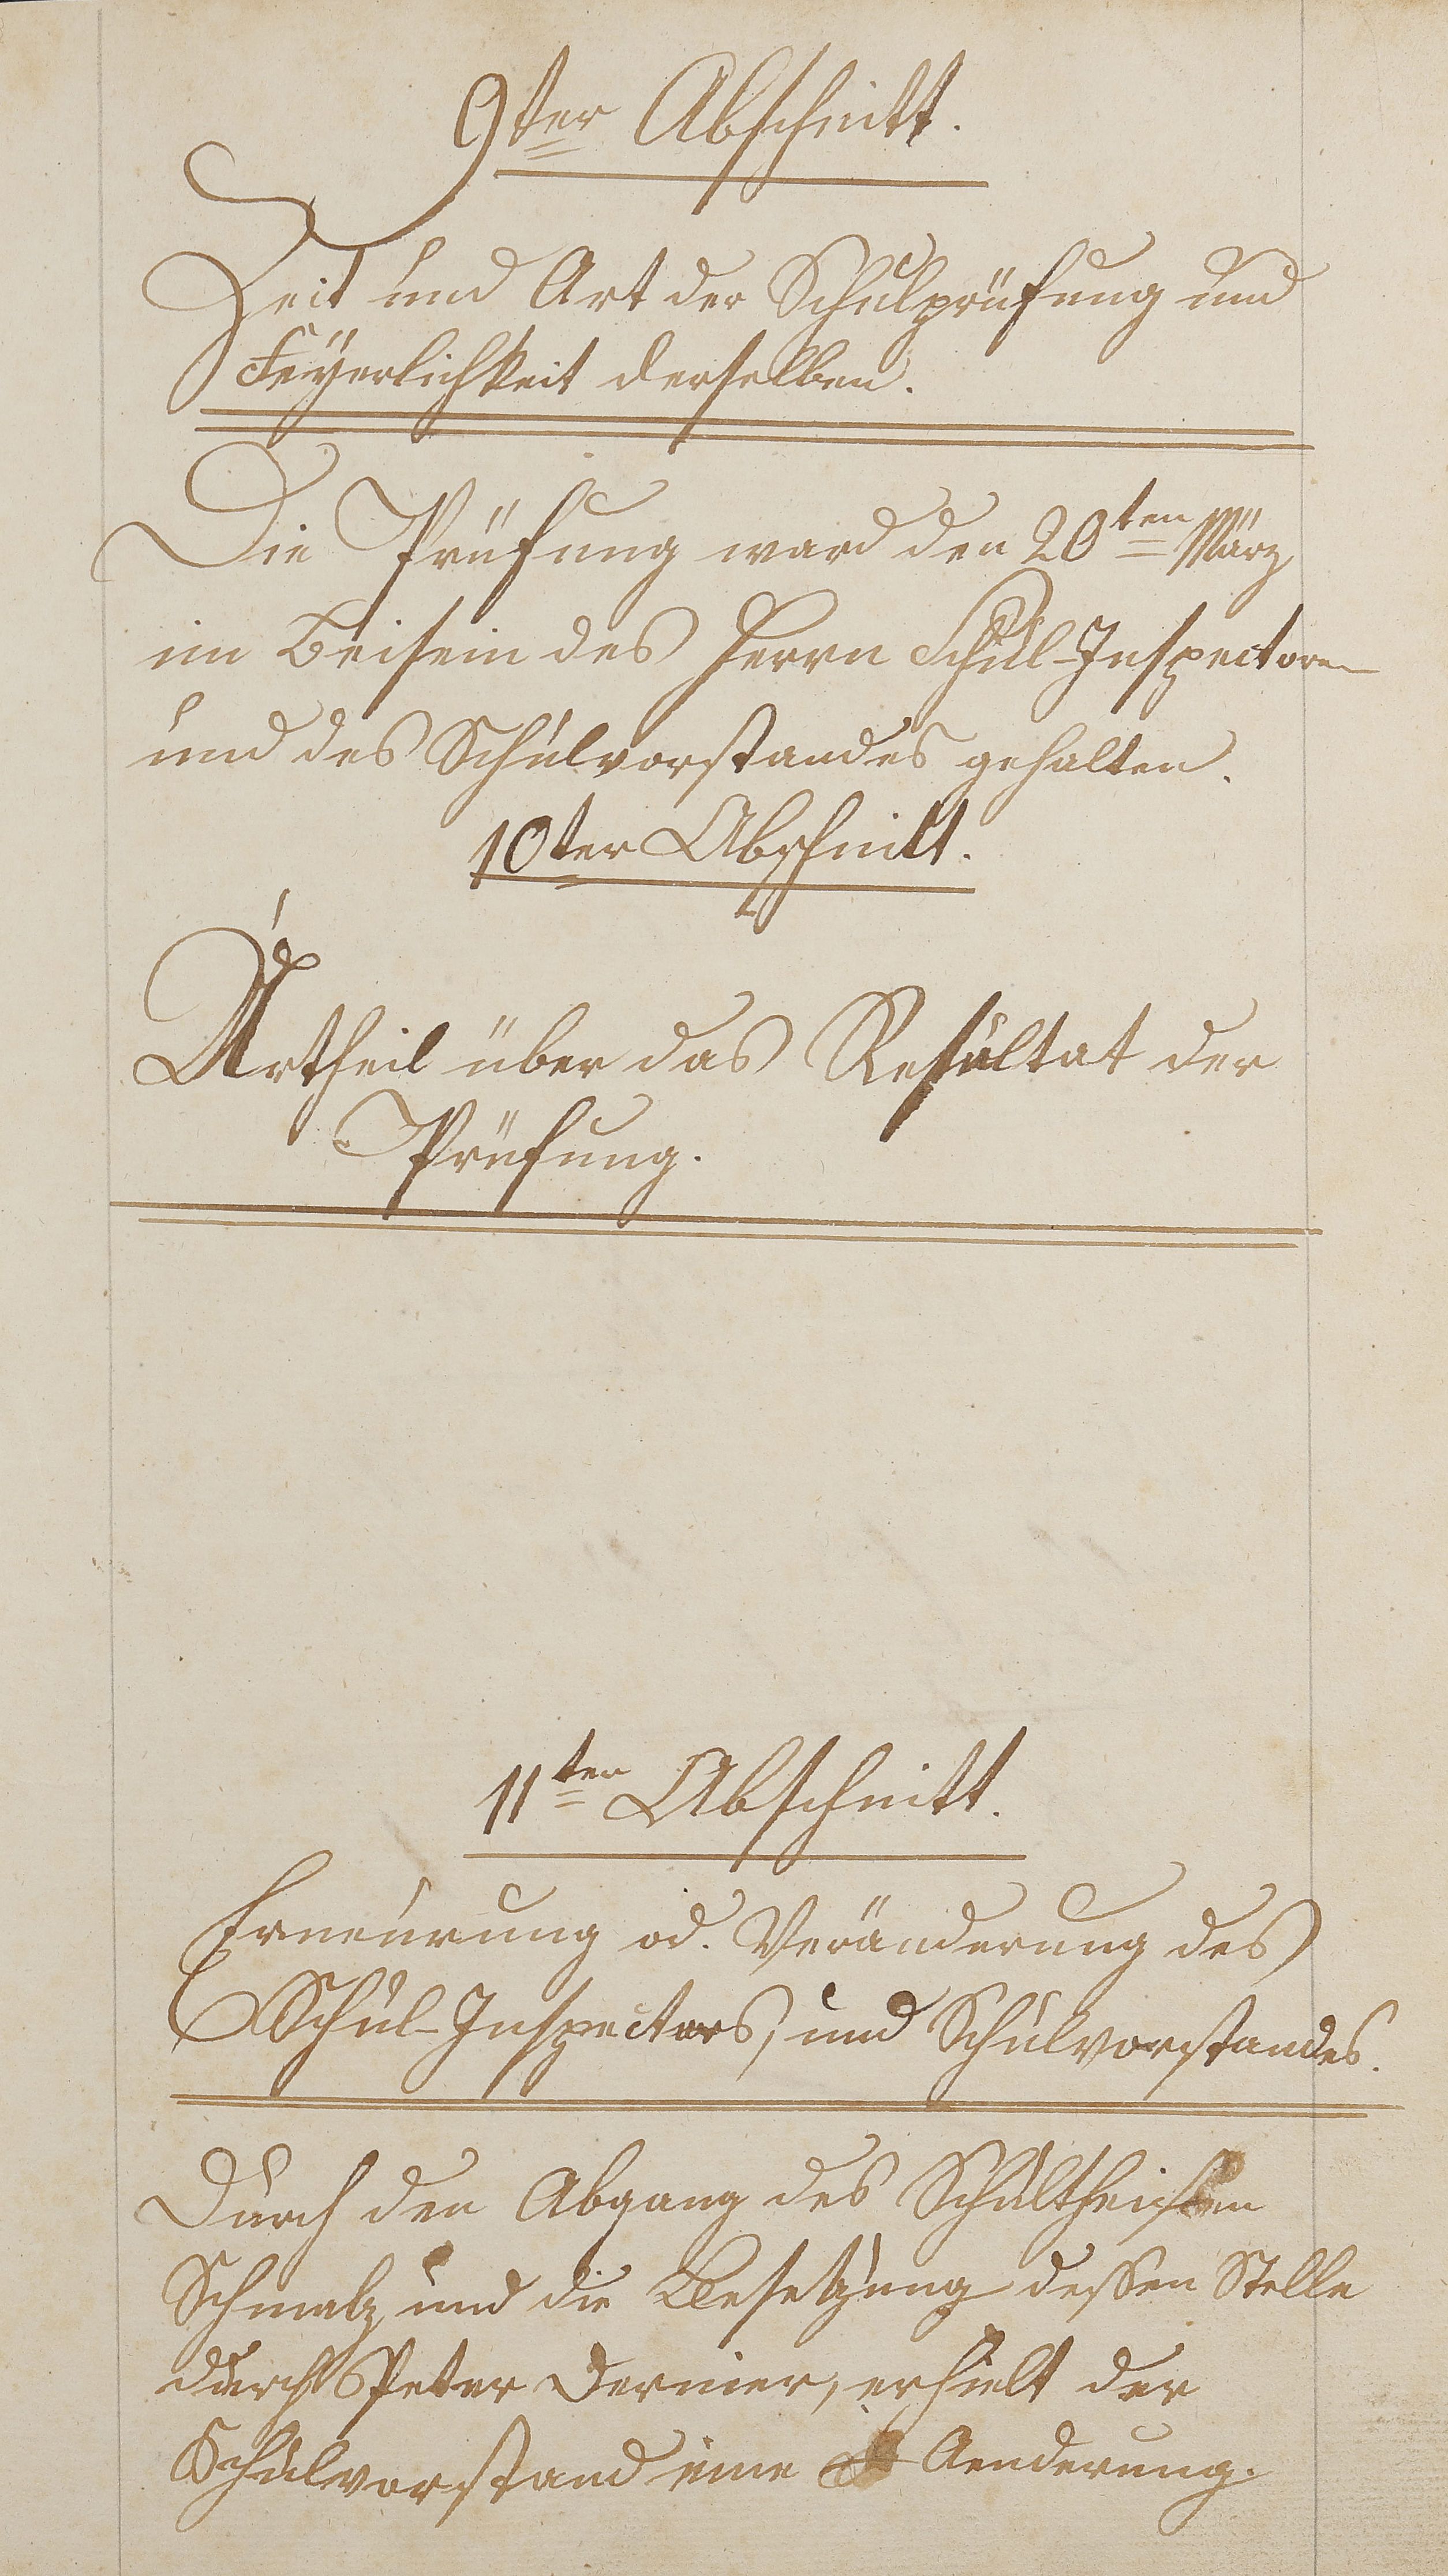 9ter Abschnitt.
Zeit und Art der Schulprüfung und
Feyerlichkeit derselben.
Die Prüfung ward den 20ten März
im Beisein des Herrn Schul-Inspectoren
und des Schulvorstandes gehalten.
10ter Abschnitt.
Urtheil über das Resultat der
Prüfung.
11ter Abschnitt.
Erneurung od. Veränderung des
Schul-Inspectors, und Schulvorstandes.
Durch den Abgang des Schultheißen
Schmalz und die Besetzung dessen Stelle
durch Peter Dernier, erhielt der
Schulvorstand eine Aenderung.